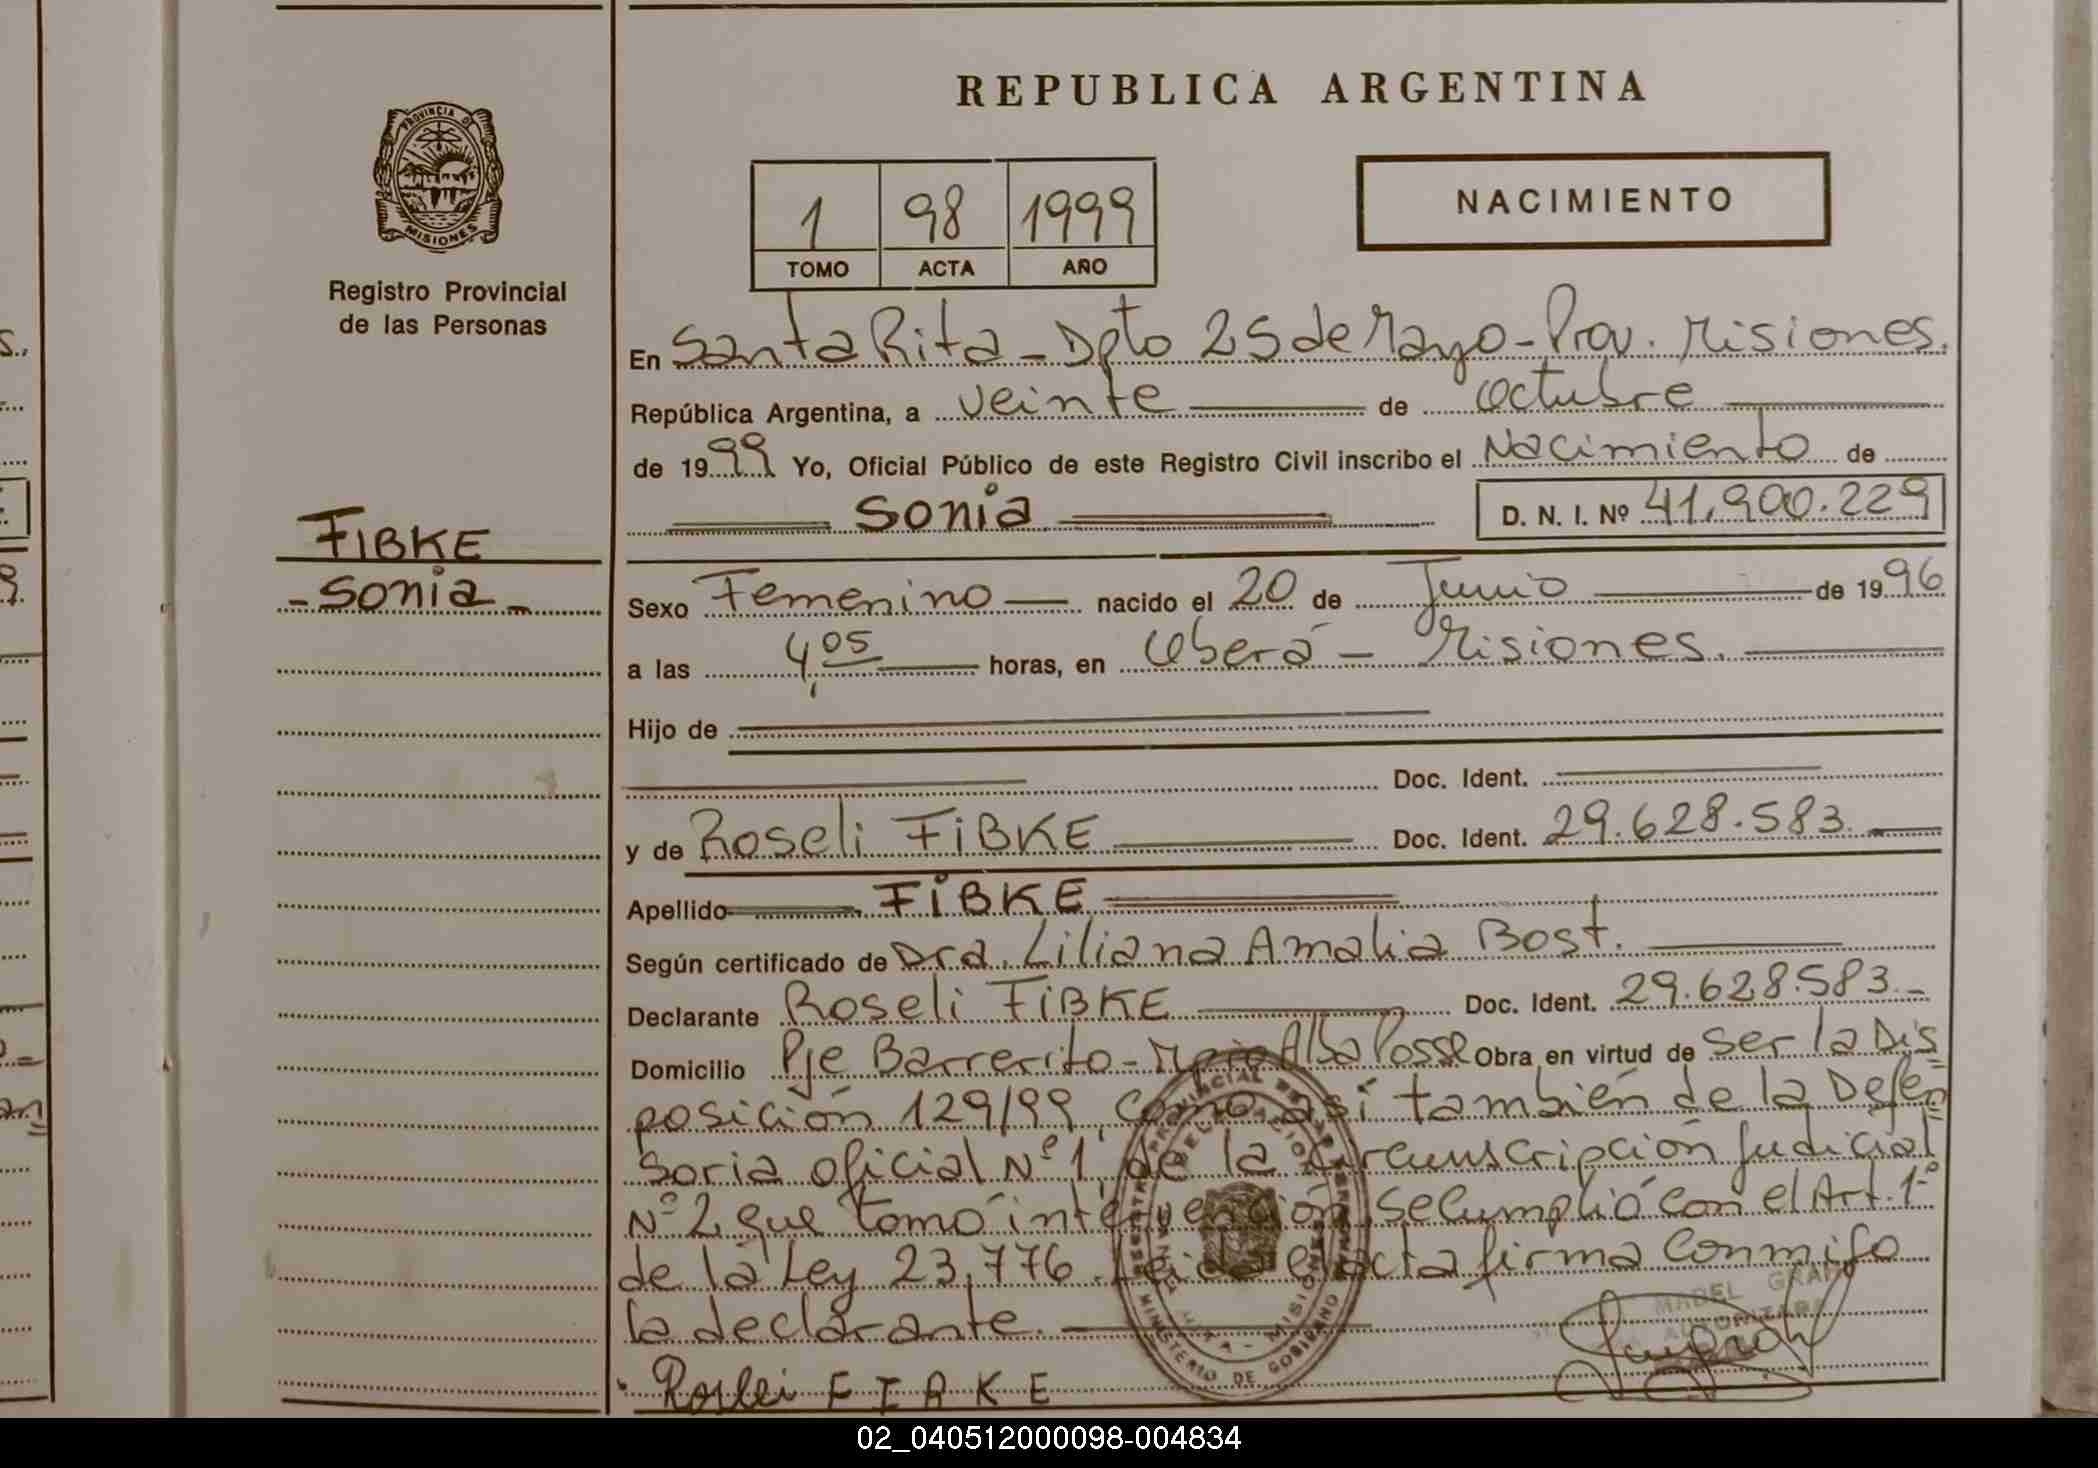 REPUBLICA ARGENTINA
PROVINCIA DE
MISIONES
Registro Provincial
de las Personas
1 98 1999
TOMO ACTA AÑO
NACIMIENTO
En Santa Rita - Dpto 25 de Mayo - Prov. Misiones.
República Argentina, a veinte de octubre
de 1999 Yo, Oficial Público de este Registro Civil inscribo el Nacimiento de
Sonia D. N. I. Nº 41.900.229
FIBKE
- Sonia -
Sexo Femenino nacido el 20 de Junio de 1996
a las 4,05 horas, en Oberá - Misiones.
Hijo de
Doc. Ident.
y de Roseli FiBKE Doc. Ident. 29.628.583.
Apellido FiBKE
Según certificado de Dra. Liliana Amalia Bost.
Declarante Roseli FiBKE Doc. Ident. 29.628.583.-
Domicilio Pje Barrerito - Mpio Alba Posse Obra en virtud de ser la Dis
posición 129/99, como así también de la Defen
soria oficial Nº 1, de la Circunscripción Judicial
Nº 2 que tomó intervención, se cumplió con el Art. 1º
de la Ley 23.776. Leida el acta firma conmigo
la declarante.
Roslei FIBKE
MINISTERIO DE GOBIERNO
MISIONES
MABEL
02_040512000098-004834